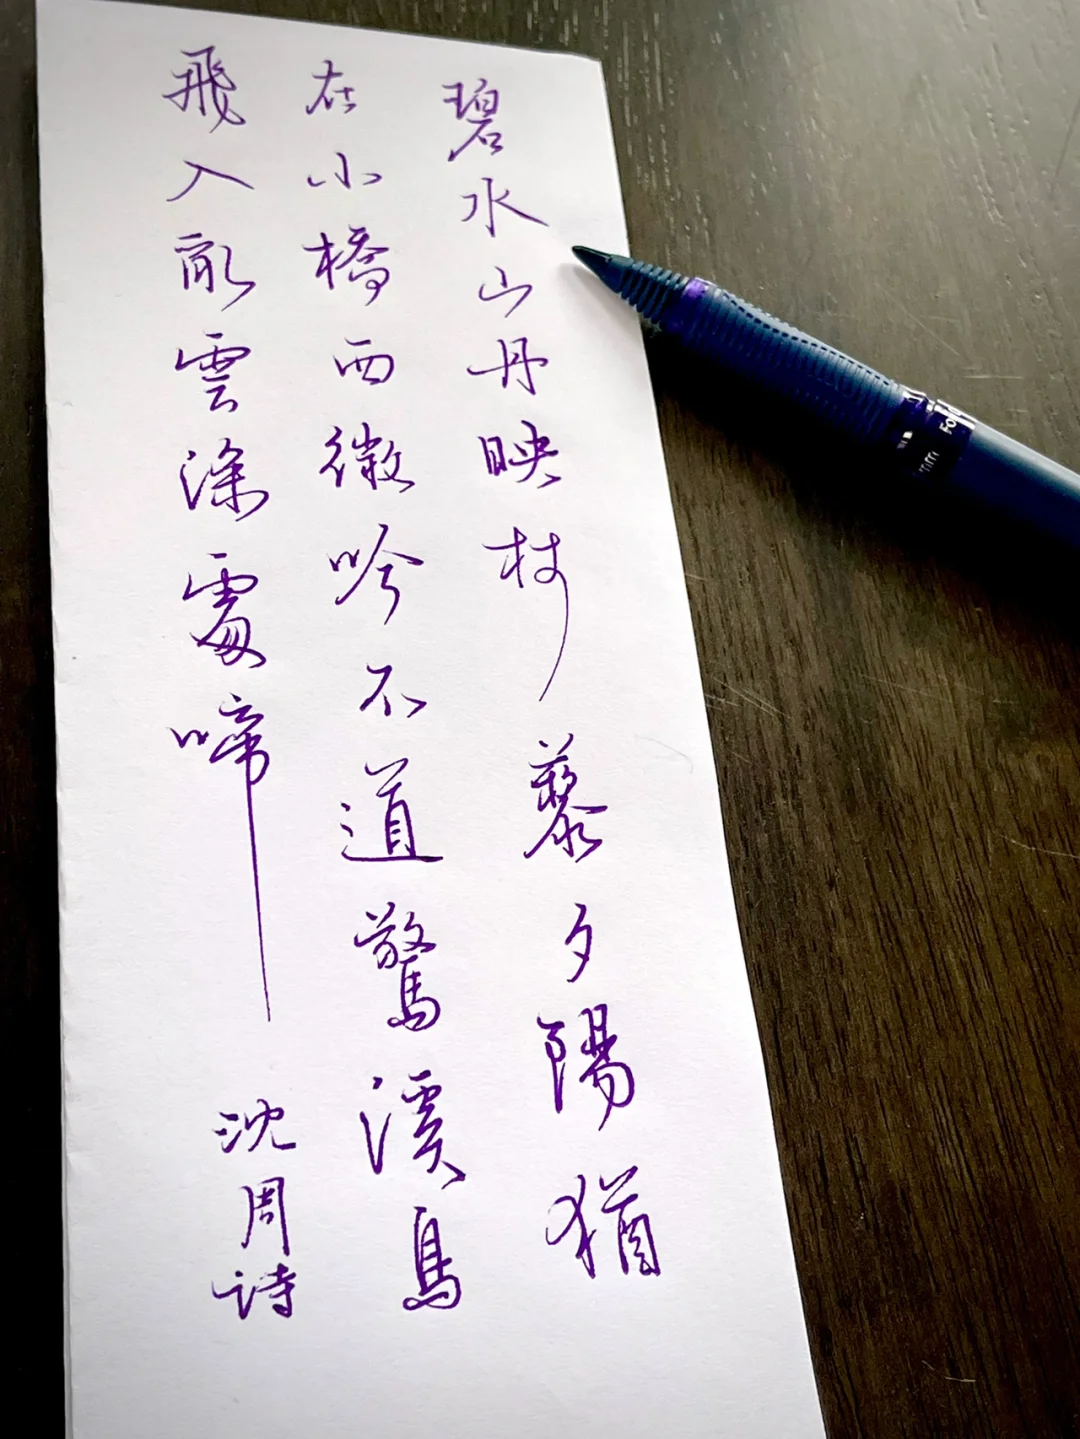 碧水山丹映杖藜夕陽猶
在小橋西微吟不道驚溪鳥
飛入亂雲深處啼
沈周詩